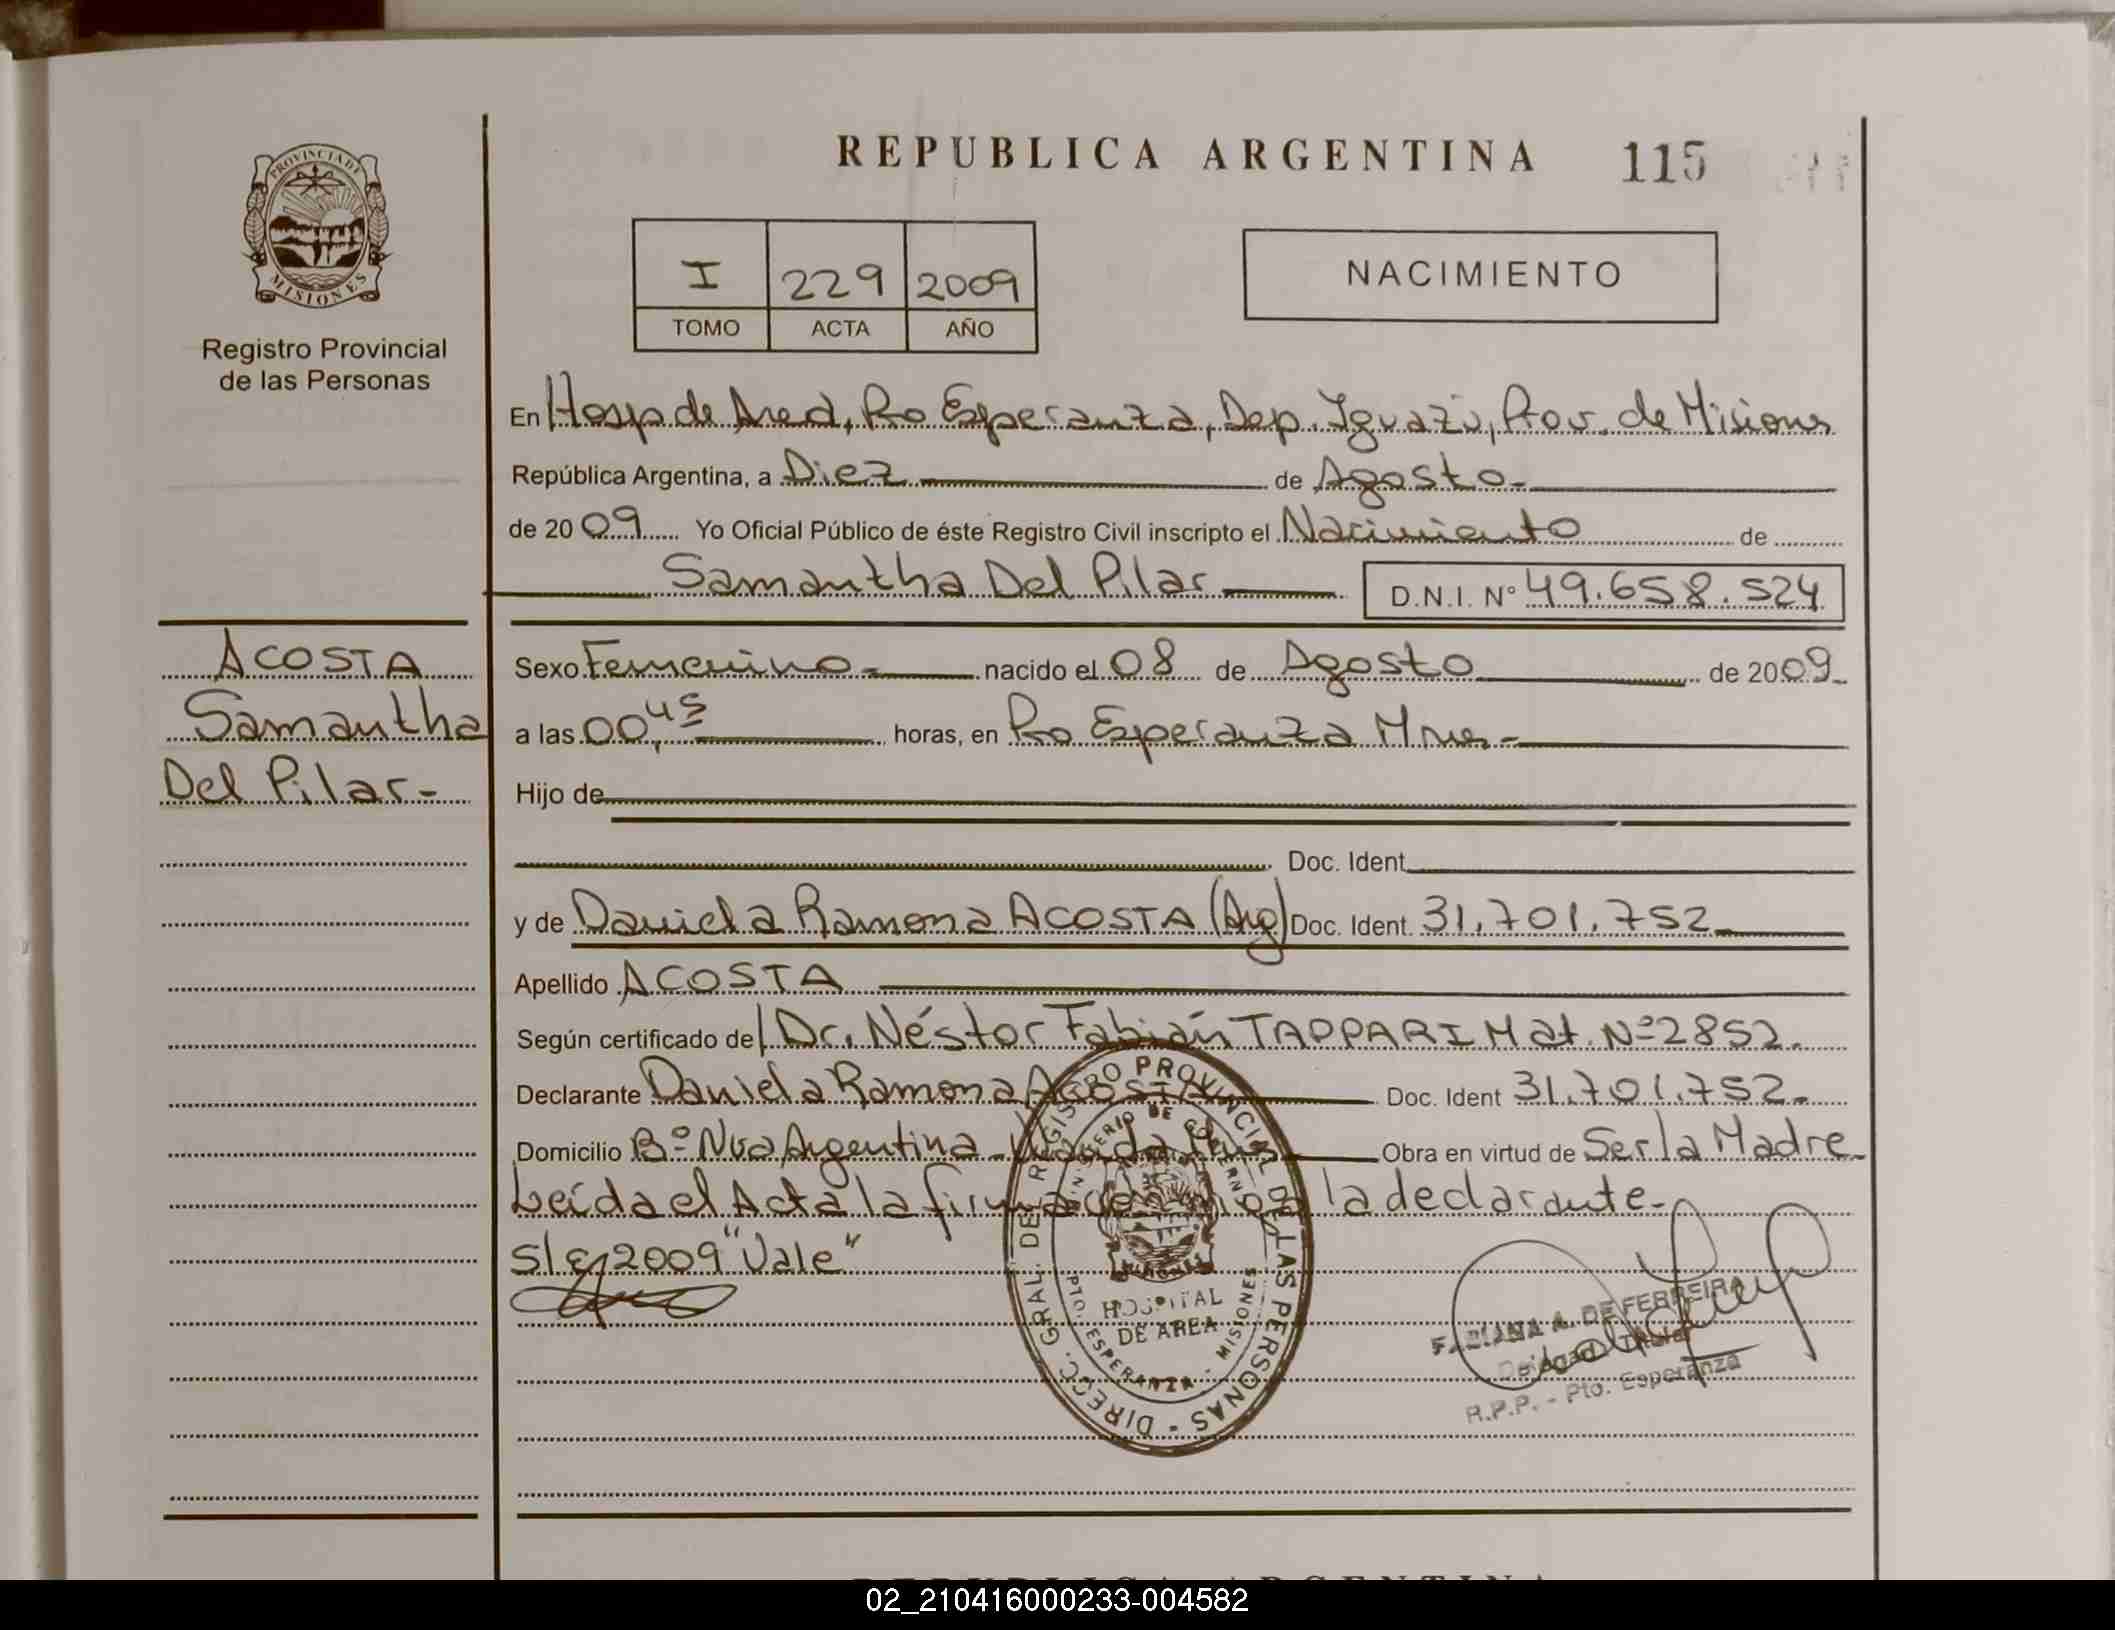 REPUBLICA ARGENTINA 115
PROVINCIA DE
MISIONES
Registro Provincial
de las Personas
I 229 2009
TOMO ACTA AÑO
NACIMIENTO
En Hosp de Area, Pto Esperanza, Dep. Iguazú, Prov. de Misiones
República Argentina, a Diez de Agosto
de 2009 Yo Oficial Público de éste Registro Civil inscripto el Nacimiento de
Samantha Del Pilar D.N.I. N° 49.658.524
ACOSTA
Samantha
Del Pilar-
Sexo Femenino- nacido el 08 de Agosto de 2009
a las 00,45 horas, en Pto Esperanza Mnes-
Hijo de
Doc. Ident.
y de Daniela Ramona ACOSTA (Arg) Doc. Ident. 31.701.752
Apellido ACOSTA
Según certificado de Dr. Néstor Fabián TAPPARI Mat. Nº 2852.
Declarante Daniela Ramona ACOSTA Doc. Ident 31.701.752
Domicilio Bº Nva Argentina - Mnes Obra en virtud de Ser la Madre
Leída el Acta la firma conmigo la declarante-
S/E 2009 "Vale"
DIRECC. GRAL. DEL REGISTRO PROVINCIAL DE LAS PERSONAS
MINISTERIO DE GOBIERNO
MISIONES
HOSPITAL
DE AREA
PTO. ESPERANZA - MISIONES
FABIANA A. DE FERREIRA
Delegada Titular
R.P.P. - Pto. Esperanza
REPUBLICA ARGENTINA
02_210416000233-004582